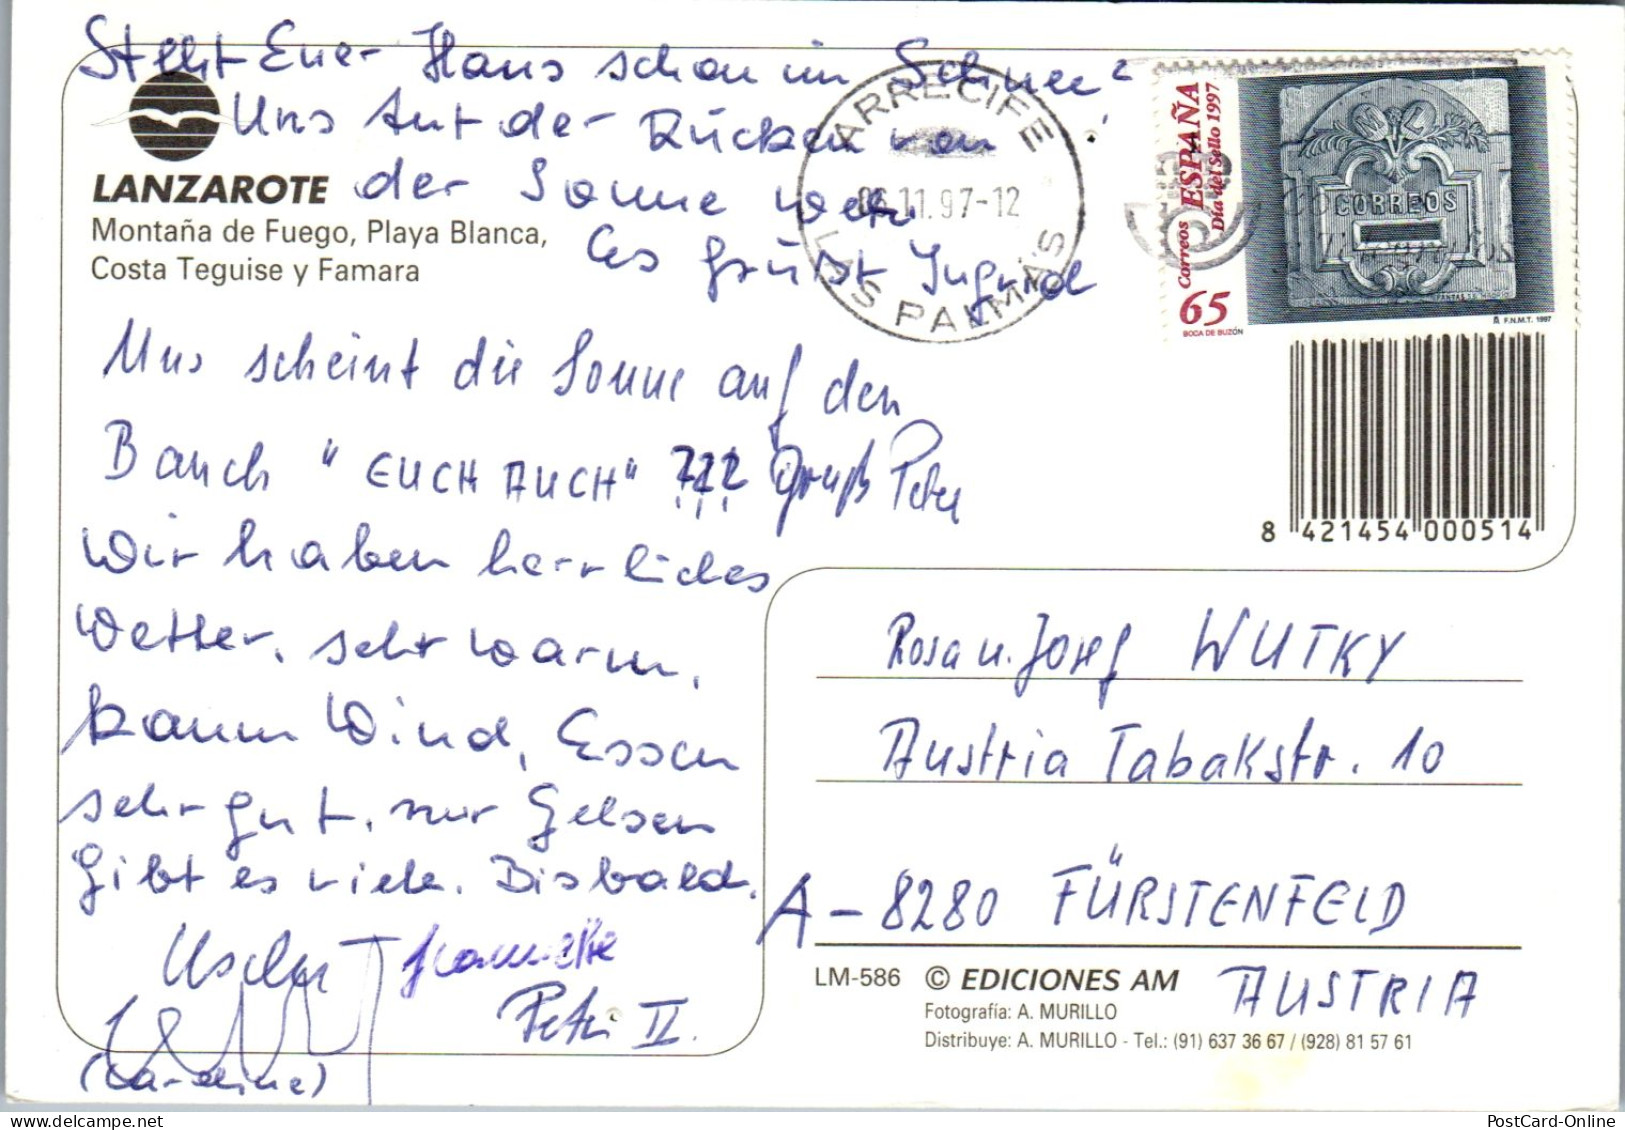 Steht Euer Haus schon im Schnee?
Uns tut der Rücken von
der Sonne weh
Es grüßt Ingrid
LANZAROTE
Montaña de Fuego, Playa Blanca,
Costa Teguise y Famara
ARRECIFE
06.11.97-12
LAS PALMAS
ESPAÑA
Correos
Día del Sello 1997
65
BOCA DE BUZÓN
CORREOS
F.N.M.T. 1997
Uns scheint die Sonne auf den
Bauch "EUCH AUCH" ??? Gruß Peter
Wir haben herrliches
Wetter, sehr warm,
kaum Wind, Essen
sehr gut, nur Gelsen
gibt es viele. Bis bald.
Jeannette
Peter II.
(Caroline)
8 421454 000514
Rosa u. Josef WUTKY
Austria Tabakstr. 10
A-8280 FÜRSTENFELD
AUSTRIA
LM-586 © EDICIONES AM
Fotografía: A. MURILLO
Distribuye: A. MURILLO - Tel.: (91) 637 36 67 / (928) 81 57 61
PostCard-Online